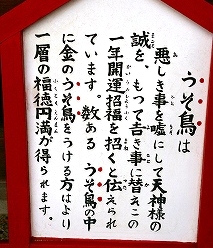 うそ鳥は
悪しき事を嘘にして天神様の
誠を、もつて吉き事に替えこの
一年開運招福を招くと伝えられ
ています。数あるうそ鳥の中
に金のうそ鳥をうける方はより
一層の福徳円満が得られます。